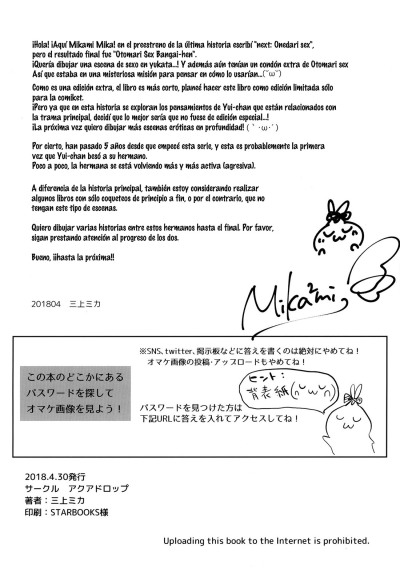 ¡Hola! ¡Aquí Mikami Mika! en el preestreno de la última historia escribí "next: Onedari sex",
pero el resultado final fue "Otomari Sex Bangai-hen".
¡Quería dibujar una escena de sexo en yukata...! Y además aún tenían un condón extra de Otomari sex
Así que estaba en una misteriosa misión para pensar en cómo lo usarían...(˘ω˘)
Como es una edición extra, el libro es más corto, planeé hacer este libro como edición limitada sólo
para la comiket.
¡Pero ya que en esta historia se exploran los pensamientos de Yui-chan que están relacionados con
la trama principal, decidí que lo mejor sería que no fuese de edición especial...!
¡La próxima vez quiero dibujar más escenas eróticas en profundidad! (｀･ω･´)
Por cierto, han pasado 5 años desde que empecé esta serie, y esta es probablemente la primera
vez que Yui-chan besó a su hermano.
Poco a poco, la hermana se está volviendo más y más activa (agresiva).
A diferencia de la historia principal, también estoy considerando realizar
algunos libros con sólo coqueteos de principio a fin, o por el contrario, que no
tengan este tipo de escenas.
Quiero dibujar varias historias entre estos hermanos hasta el final. Por favor,
sigan prestando atención al progreso de los dos.
Bueno, ¡¡hasta la próxima!!
Mika²mi
201804 三上ミカ
※SNS、twitter、掲示板などに答えを書くのは絶対にやめてね！
オマケ画像の投稿・アップロードもやめてね！
この本のどこかにある
パスワードを探して
オマケ画像を見よう！
ヒント：
背表紙(∩˘ω˘∩)
パスワードを見つけた方は
下記URLに答えを入れてアクセスしてね！
2018.4.30発行
サークル アクアドロップ
著者：三上ミカ
印刷：STARBOOKS様
Uploading this book to the Internet is prohibited.